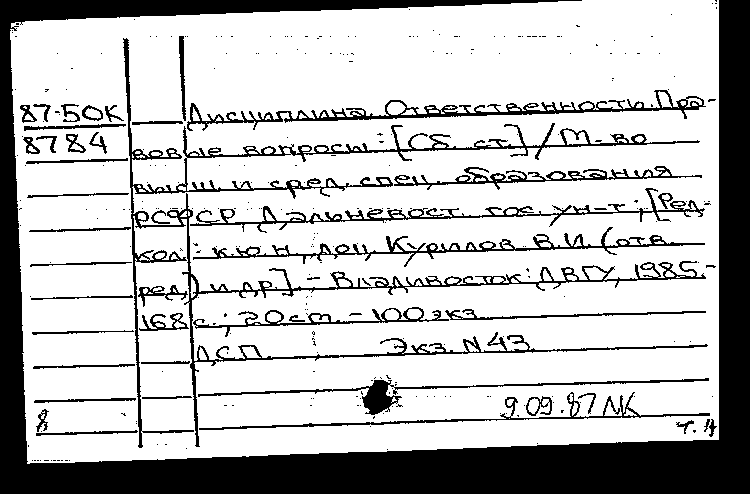 87-50К Дисциплина. Ответственность. Пра-
8784 вовые вопросы : [Сб. ст.] / М-во
высш. и сред. спец. образования
РСФСР, Дальневост. гос. ун-т ; [Ред-
кол.: к.ю.н., доц. Куриллов В.И. (отв.
ред.) и др.]. – Владивосток : ДВГУ, 1985.-
168 с. ; 20 см. – 100 экз.
ДСП. Экз. N 43
9.09.87 NK
8